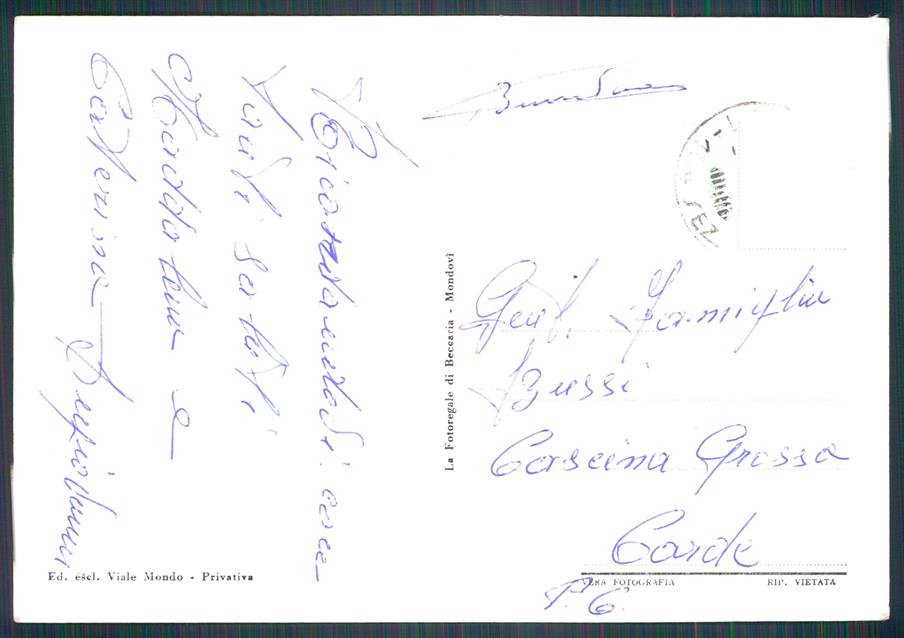 Ricordandosi con
Tanti saluti
Maddalena e
Caterina
La Fotoregale di Beccaria - Mondovì
Gent. Famiglia
Bussi
Cascina Grossa
Carde
Ed. escl. Viale Mondo - Privativa
VERA FOTOGRAFIA RIP. VIETATA